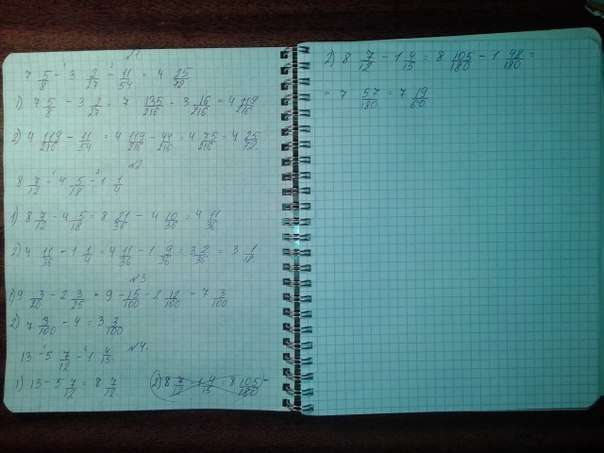 №1
7 5/8 - 3 2/27 - 11/54 = 4 25/72
1) 7 5/8 - 3 2/27 = 7 135/216 - 3 16/216 = 4 119/216
2) 4 119/216 - 11/54 = 4 119/216 - 44/216 = 4 75/216 = 4 25/72
№2
8 7/12 - 4 5/18 - 1 1/4
1) 8 7/12 - 4 5/18 = 8 21/36 - 4 10/36 = 4 11/36
2) 4 11/36 - 1 1/4 = 4 11/36 - 1 9/36 = 3 2/36 = 3 1/18
№3
1) 9 3/20 - 2 3/25 = 9 15/100 - 2 12/100 = 7 3/100
2) 7 3/100 - 4 = 3 3/100
№4.
13 - 5 7/12 - 1 4/15
1) 13 - 5 7/12 = 8 7/12
2) 8 7/12 - 1 4/15 = 8 105/180 -
2) 8 7/12 - 1 4/15 = 8 105/180 - 1 48/180 =
= 7 57/180 = 7 19/60